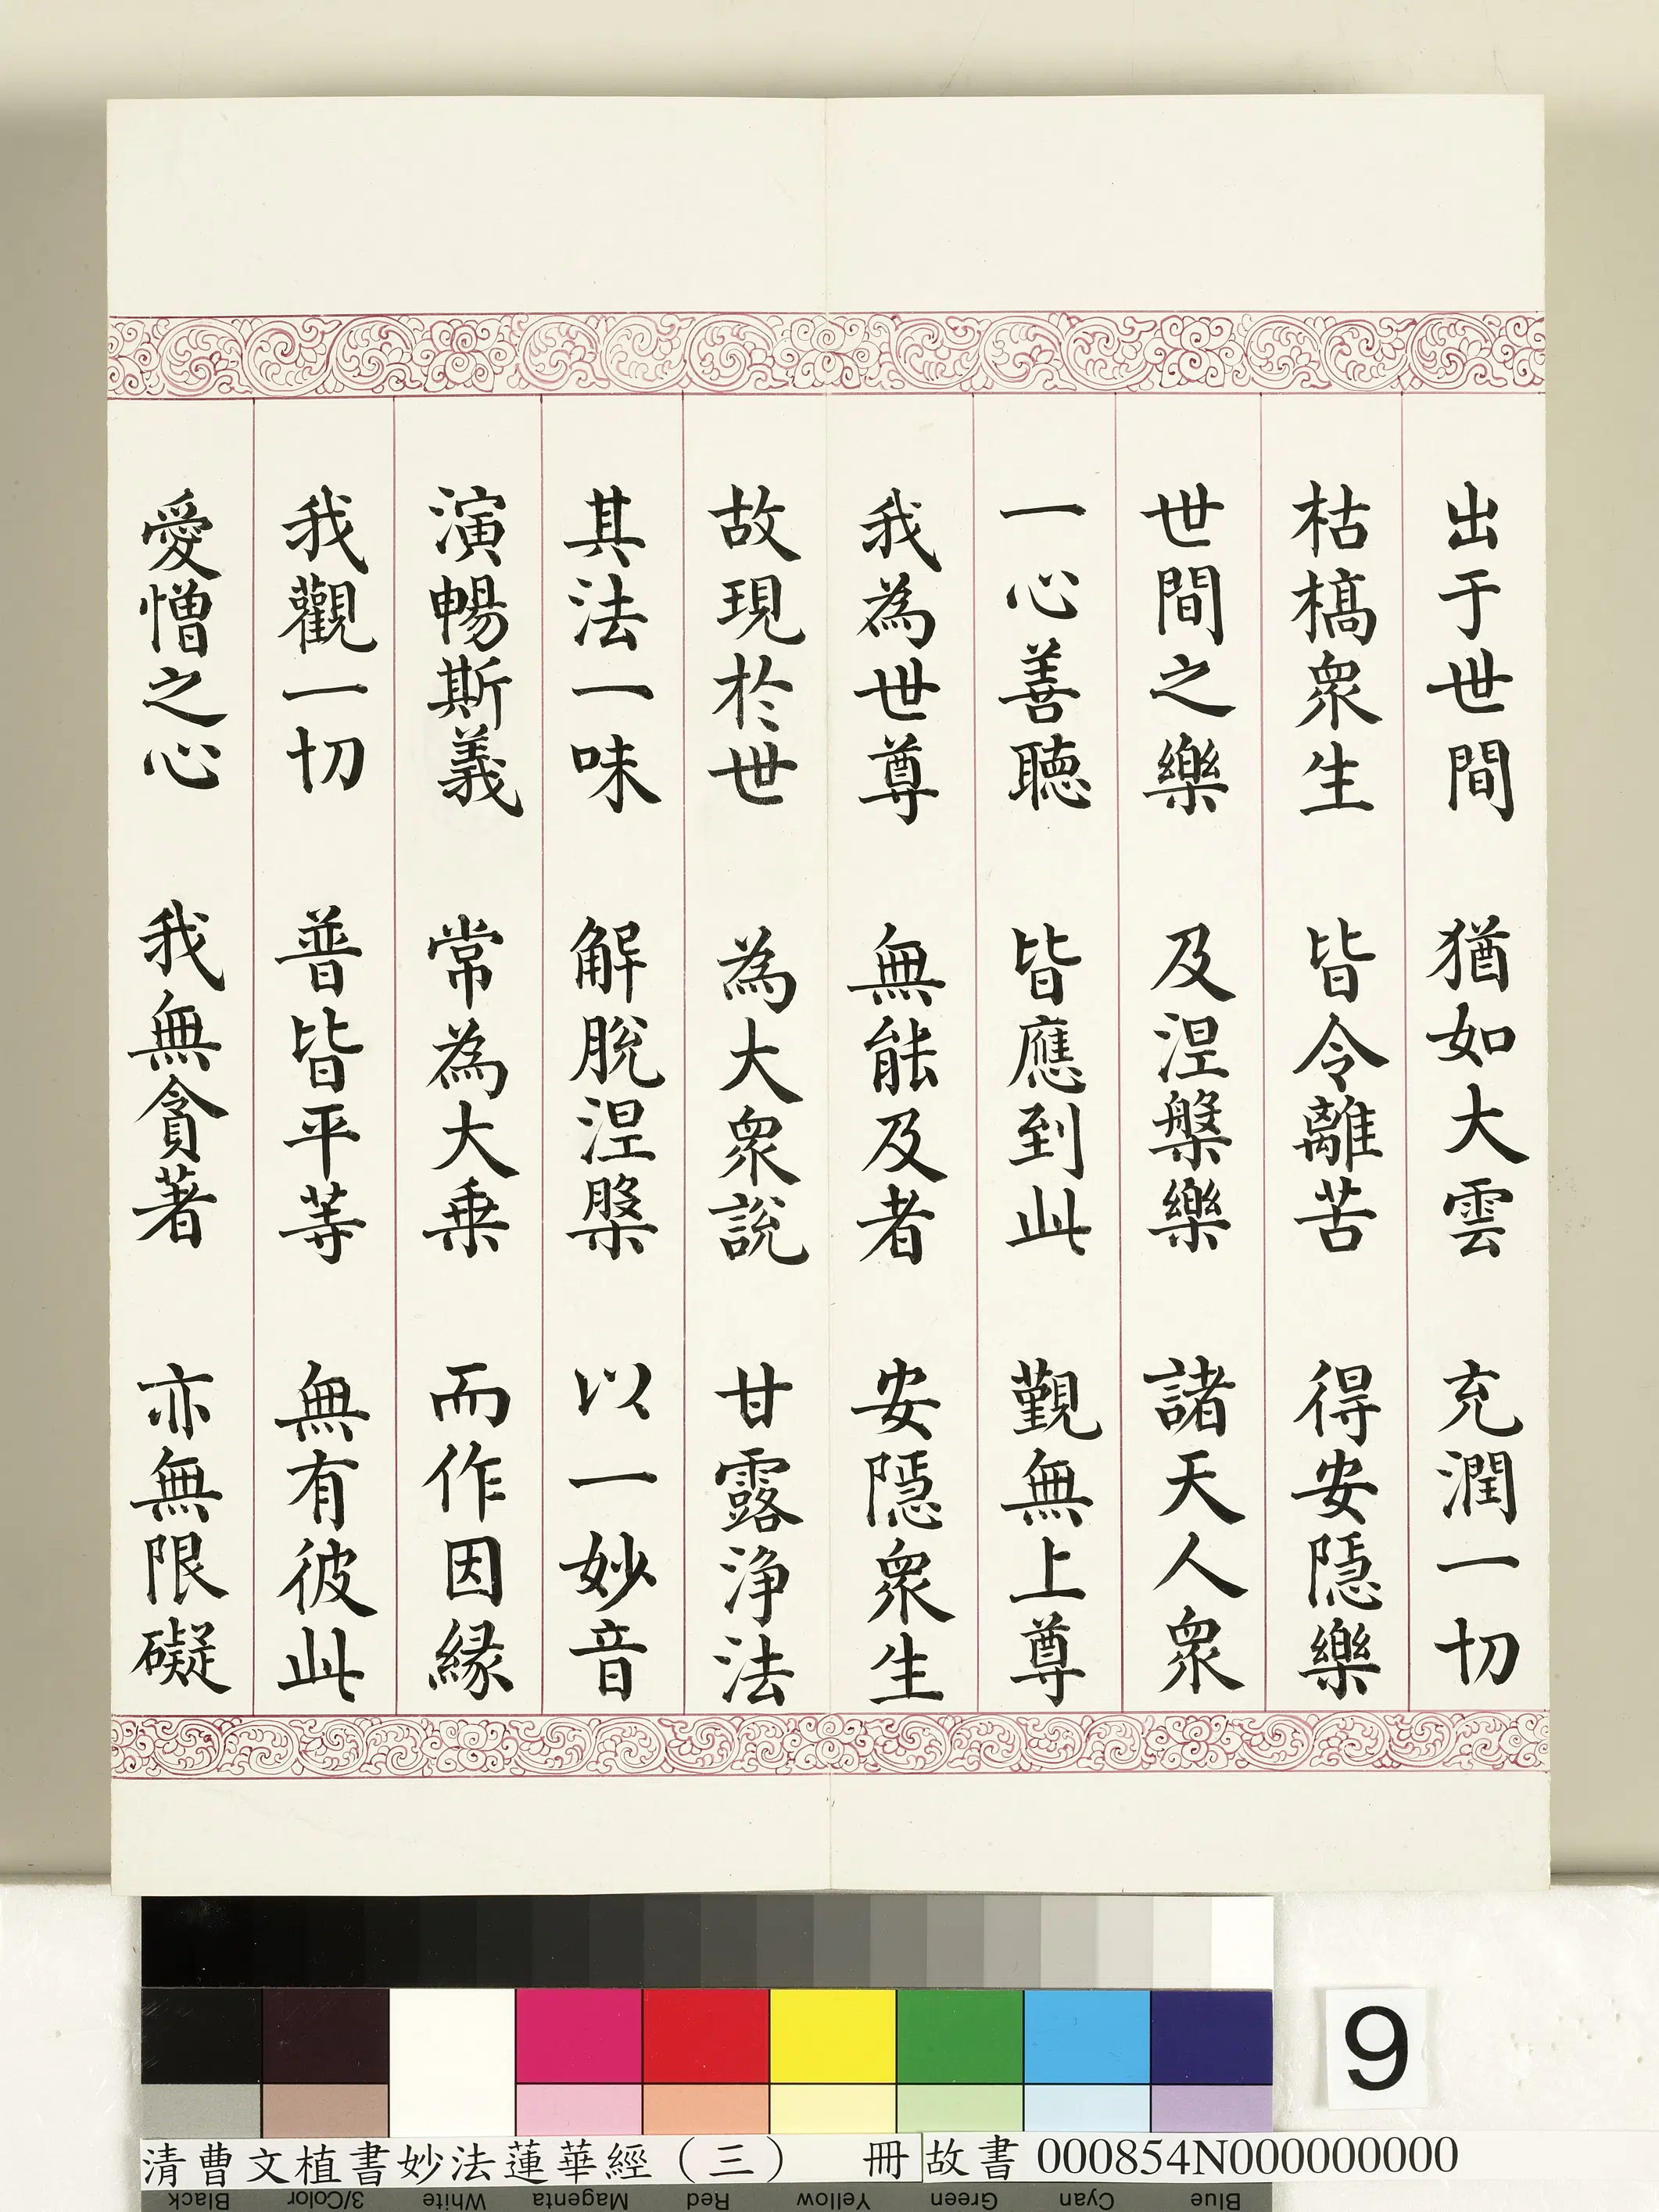 出于世間　猶如大雲　充潤一切
枯槁衆生　皆令離苦　得安隱樂
世間之樂　及涅槃樂　諸天人衆
一心善聽　皆應到此　覲無上尊
我為世尊　無能及者　安隱衆生
故現於世　為大衆說　甘露淨法
其法一味　解脫涅槃　以一妙音
演暢斯義　常為大乗　而作因緣
我觀一切　普皆平等　無有彼此
愛憎之心　我無貪著　亦無限礙
9
清曹文植書妙法蓮華經（三）　冊
故書 000854N000000000
Black 3/Color White Magenta Red Yellow Green Cyan Blue